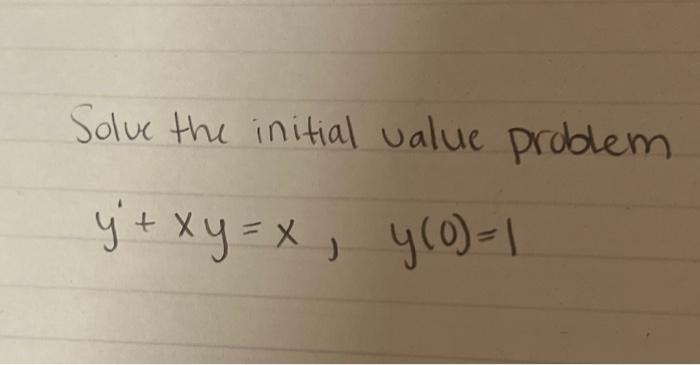 Solve the initial value problem
y' + xy = x, y(0)=1